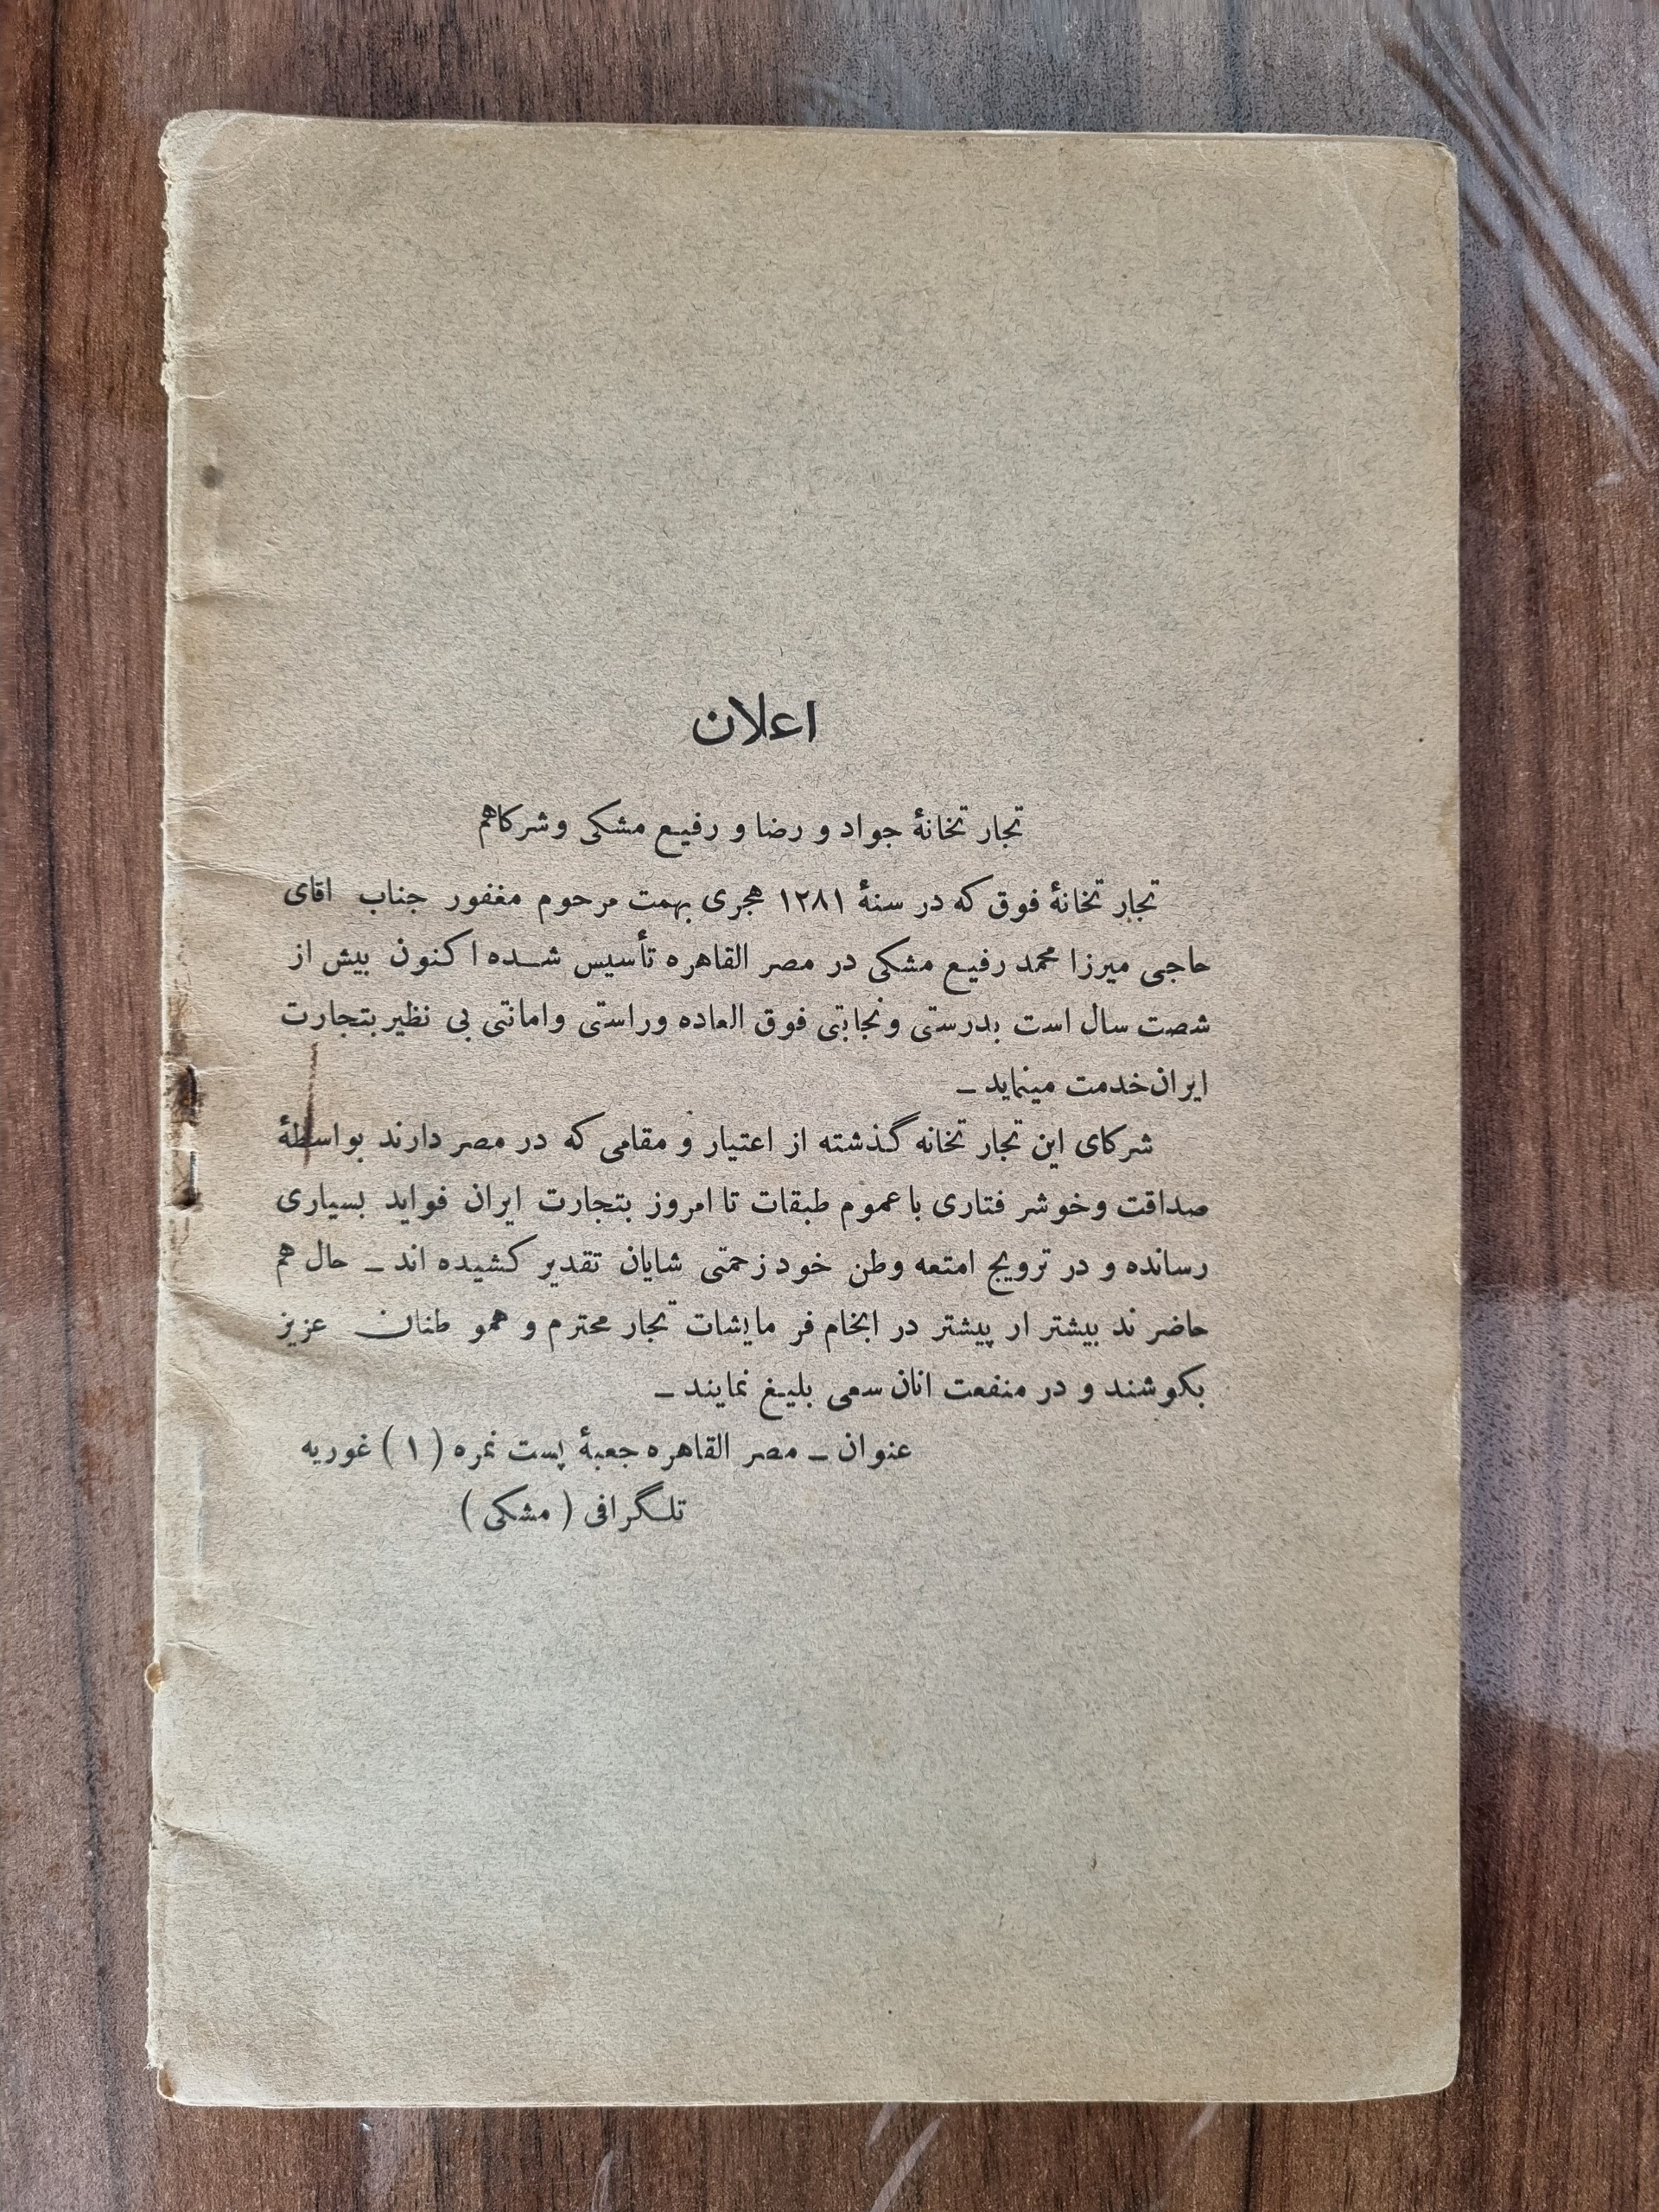 اعلان
تجار تخانهٔ جواد و رضا و رفیع مشکی وشرکاهم
تجار تخانهٔ فوق که در سنهٔ ۱۲۸۱ هجری بهمت مرحوم مغفور جناب اقای
حاجی میرزا محمد رفیع مشکی در مصر القاهره تأسیس شده اکنون بیش از
شصت سال است بدرستی ونجابتی فوق العاده وراستی وامانتی بی نظیر بتجارت
ایران خدمت مینماید ــ
شرکای این تجار تخانه گذشته از اعتبار و مقامی که در مصر دارند بواسطهٔ
صداقت وخوشر فتاری با عموم طبقات تا امروز بتجارت ایران فواید بسیاری
رسانده و در ترویج امتعه وطن خود زحمتی شایان تقدیر کشیده اند ــ حال هم
حاضر ند بیشتر ار پیشتر در انجام فر مایشات تجار محترم و همو طنان عزیز
بکوشند و در منفعت انان سعی بلیغ نمایند ــ
عنوان ــ مصر القاهره جعبهٔ پست نمره ( ۱ ) غوریه
تلگرافی ( مشکی )